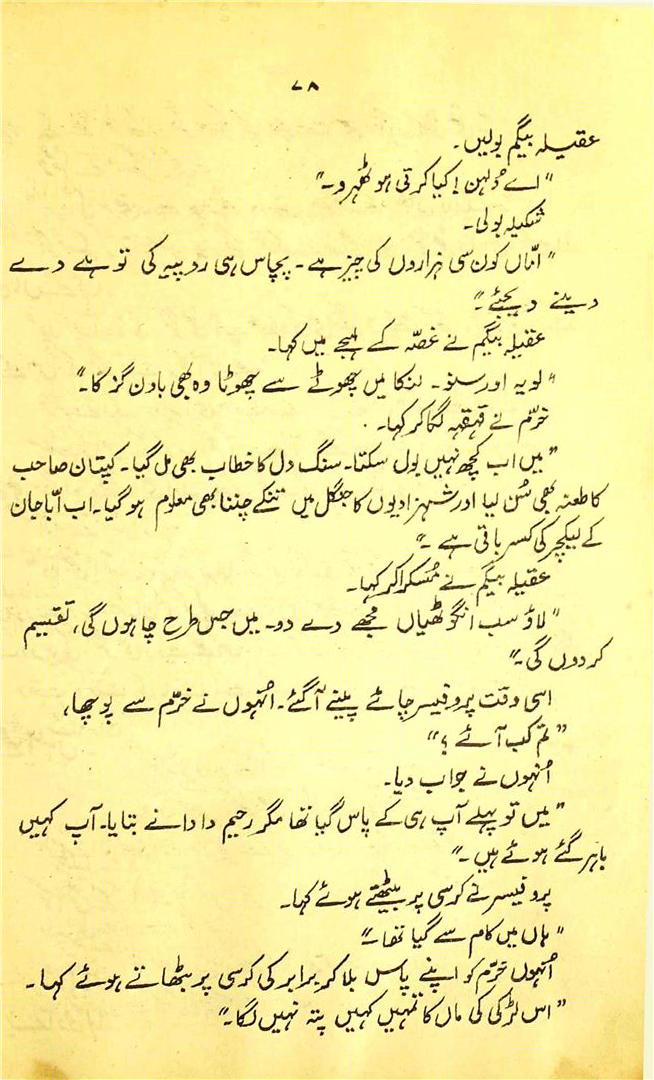 ۷۸
عقیلہ بیگم بولیں۔
"اے دُلہن! کیا کرتی ہو ٹھہرو۔"
شکیلہ بولی۔
"امّاں کون سی ہزاروں کی چیز ہے۔ پچاس ہی روپیہ کی تو ہے دے
دینے دیجئے۔"
عقیلہ بیگم نے غصّہ کے لہجے میں کہا۔
"لو یہ اور سنو۔ لنکا میں چھوٹے سے چھوٹا وہ بھی باون گز کا۔"
خرّم نے قہقہہ لگا کر کہا۔
"میں اب کچھ نہیں بول سکتا۔ سنگ دل کا خطاب بھی مل گیا۔ کپتان صاحب
کا طعنہ بھی سُن لیا اور شہزادیوں کا جنگل میں تنکے چننا بھی معلوم ہو گیا۔ اب ابّا جان
کے لیکچر کی کسر باقی ہے۔"
عقیلہ بیگم نے مُسکرا کر کہا۔
"لاؤ سب انگوٹھیاں مجھے دے دو۔ میں جس طرح چاہوں گی، تقسیم
کر دوں گی۔"
اسی وقت پروفیسر چائے پینے آ گئے۔ اُنہوں نے خرّم سے پوچھا،
"تم کب آئے؟"
اُنہوں نے جواب دیا۔
"میں تو پہلے آپ ہی کے پاس گیا تھا مگر رحیم دادا نے بتایا۔ آپ کہیں
باہر گئے ہوئے ہیں۔"
پروفیسر نے کرسی پر بیٹھتے ہوئے کہا۔
"ہاں میں کام سے گیا تھا۔"
اُنہوں خرّم کو اپنے پاس بلا کر برابر کی کرسی پر بٹھاتے ہوئے کہا۔
"اس لڑکی کی ماں کا تمہیں کہیں پتہ نہیں لگا۔"